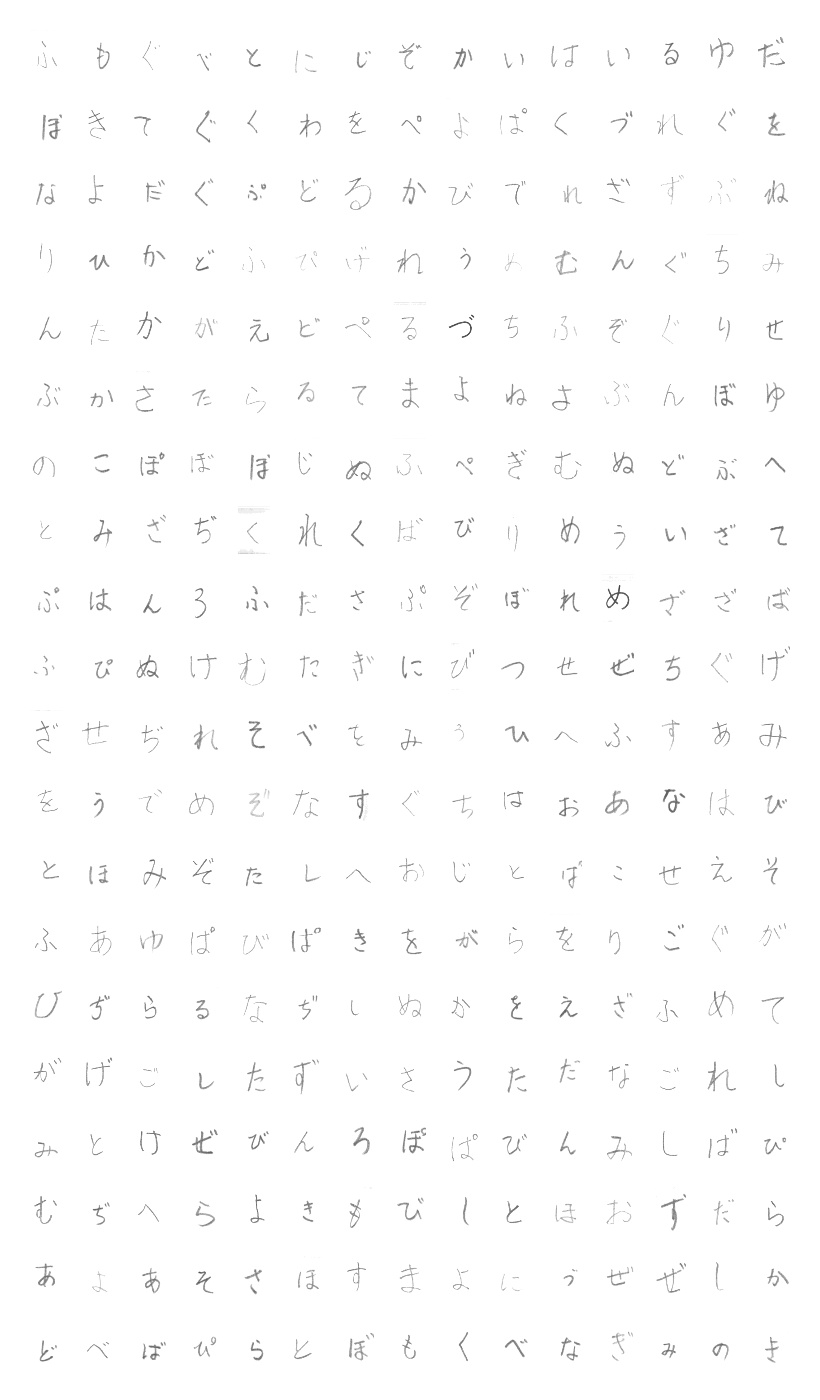 ふもぐべとにじぞかいはいるゆだ
ぼきてぐくわをぺよぱくづれぐを
なよだぐぷどるかびでれざずぶね
りひかどふぴげれうめむんぐちみ
んたかがえどぺるづちふぞぐりせ
ぶかさたらるてまよねよぶんぼゆ
のこぽぼぼじぬふぺぎむぬどぶへ
とみざぢくれくばびりめういざて
ぷはんろふださぷぞぼれめざざば
ふぴぬけむたぎにびつせぜちぐげ
ざせぢれそべをみうひへふすあみ
をうでめぞなすぐちはおあなはび
とほみぞたしへおじとばこせえそ
ふあゆぱびぱきをがらをりごぐが
ひぢらるなぢしぬかをえざふめて
がげごしたずいさうただなごれし
みとけぜびんろぽぱびんみしばぴ
むぢへらよきもびしとほおずだら
あよあそさほすまよにづぜぜしか
どべばぴらとぼもくべなぎみのき